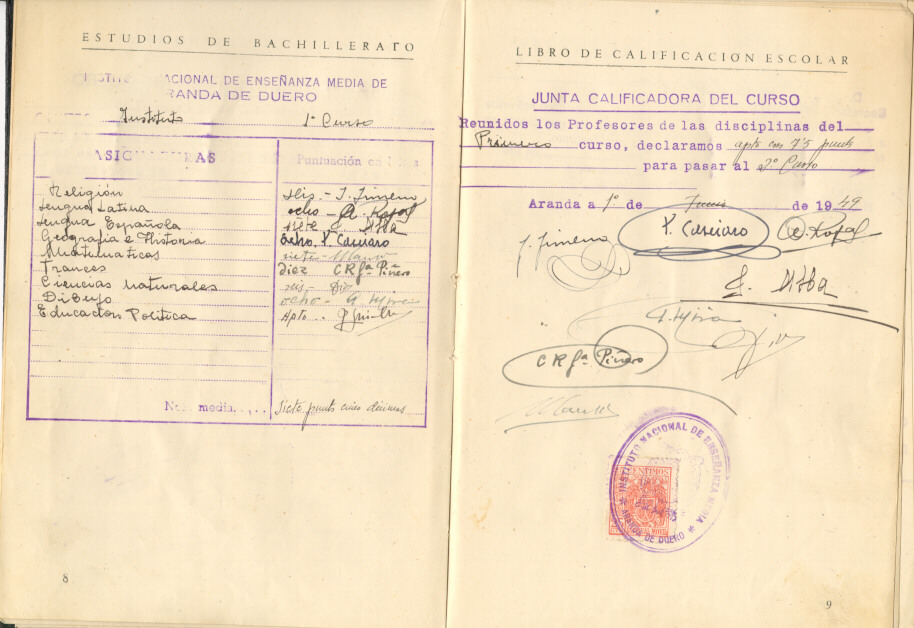 ESTUDIOS DE BACHILLERATO
INSTITUTO NACIONAL DE ENSEÑANZA MEDIA DE
ARANDA DE DUERO
Instituto 1º Curso
ASIGNATURAS Puntuación en
Religión seis - J. Jimeno
Lengua Latina ocho -
Lengua Española siete
Geografía e Historia Ocho. V. Canciaro
Matematicas siete -
Frances diez CR Gª Piñero
Ciencias naturales seis -
Dibujo ocho -
Educación Política Apto -
Nota media. siete puntos cinco décimas
8
LIBRO DE CALIFICACIÓN ESCOLAR
JUNTA CALIFICADORA DEL CURSO
Reunidos los Profesores de las disciplinas del
Primero curso, declaramos apto con 7'5 punts
para pasar al 2º Curso
Aranda a 1º de Junio de 1949
J. Jimeno V. Canciaro
CR Gª Piñero
INSTITUTO NACIONAL DE ENSEÑANZA MEDIA
* ARANDA DE DUERO *
CENTIMOS
9